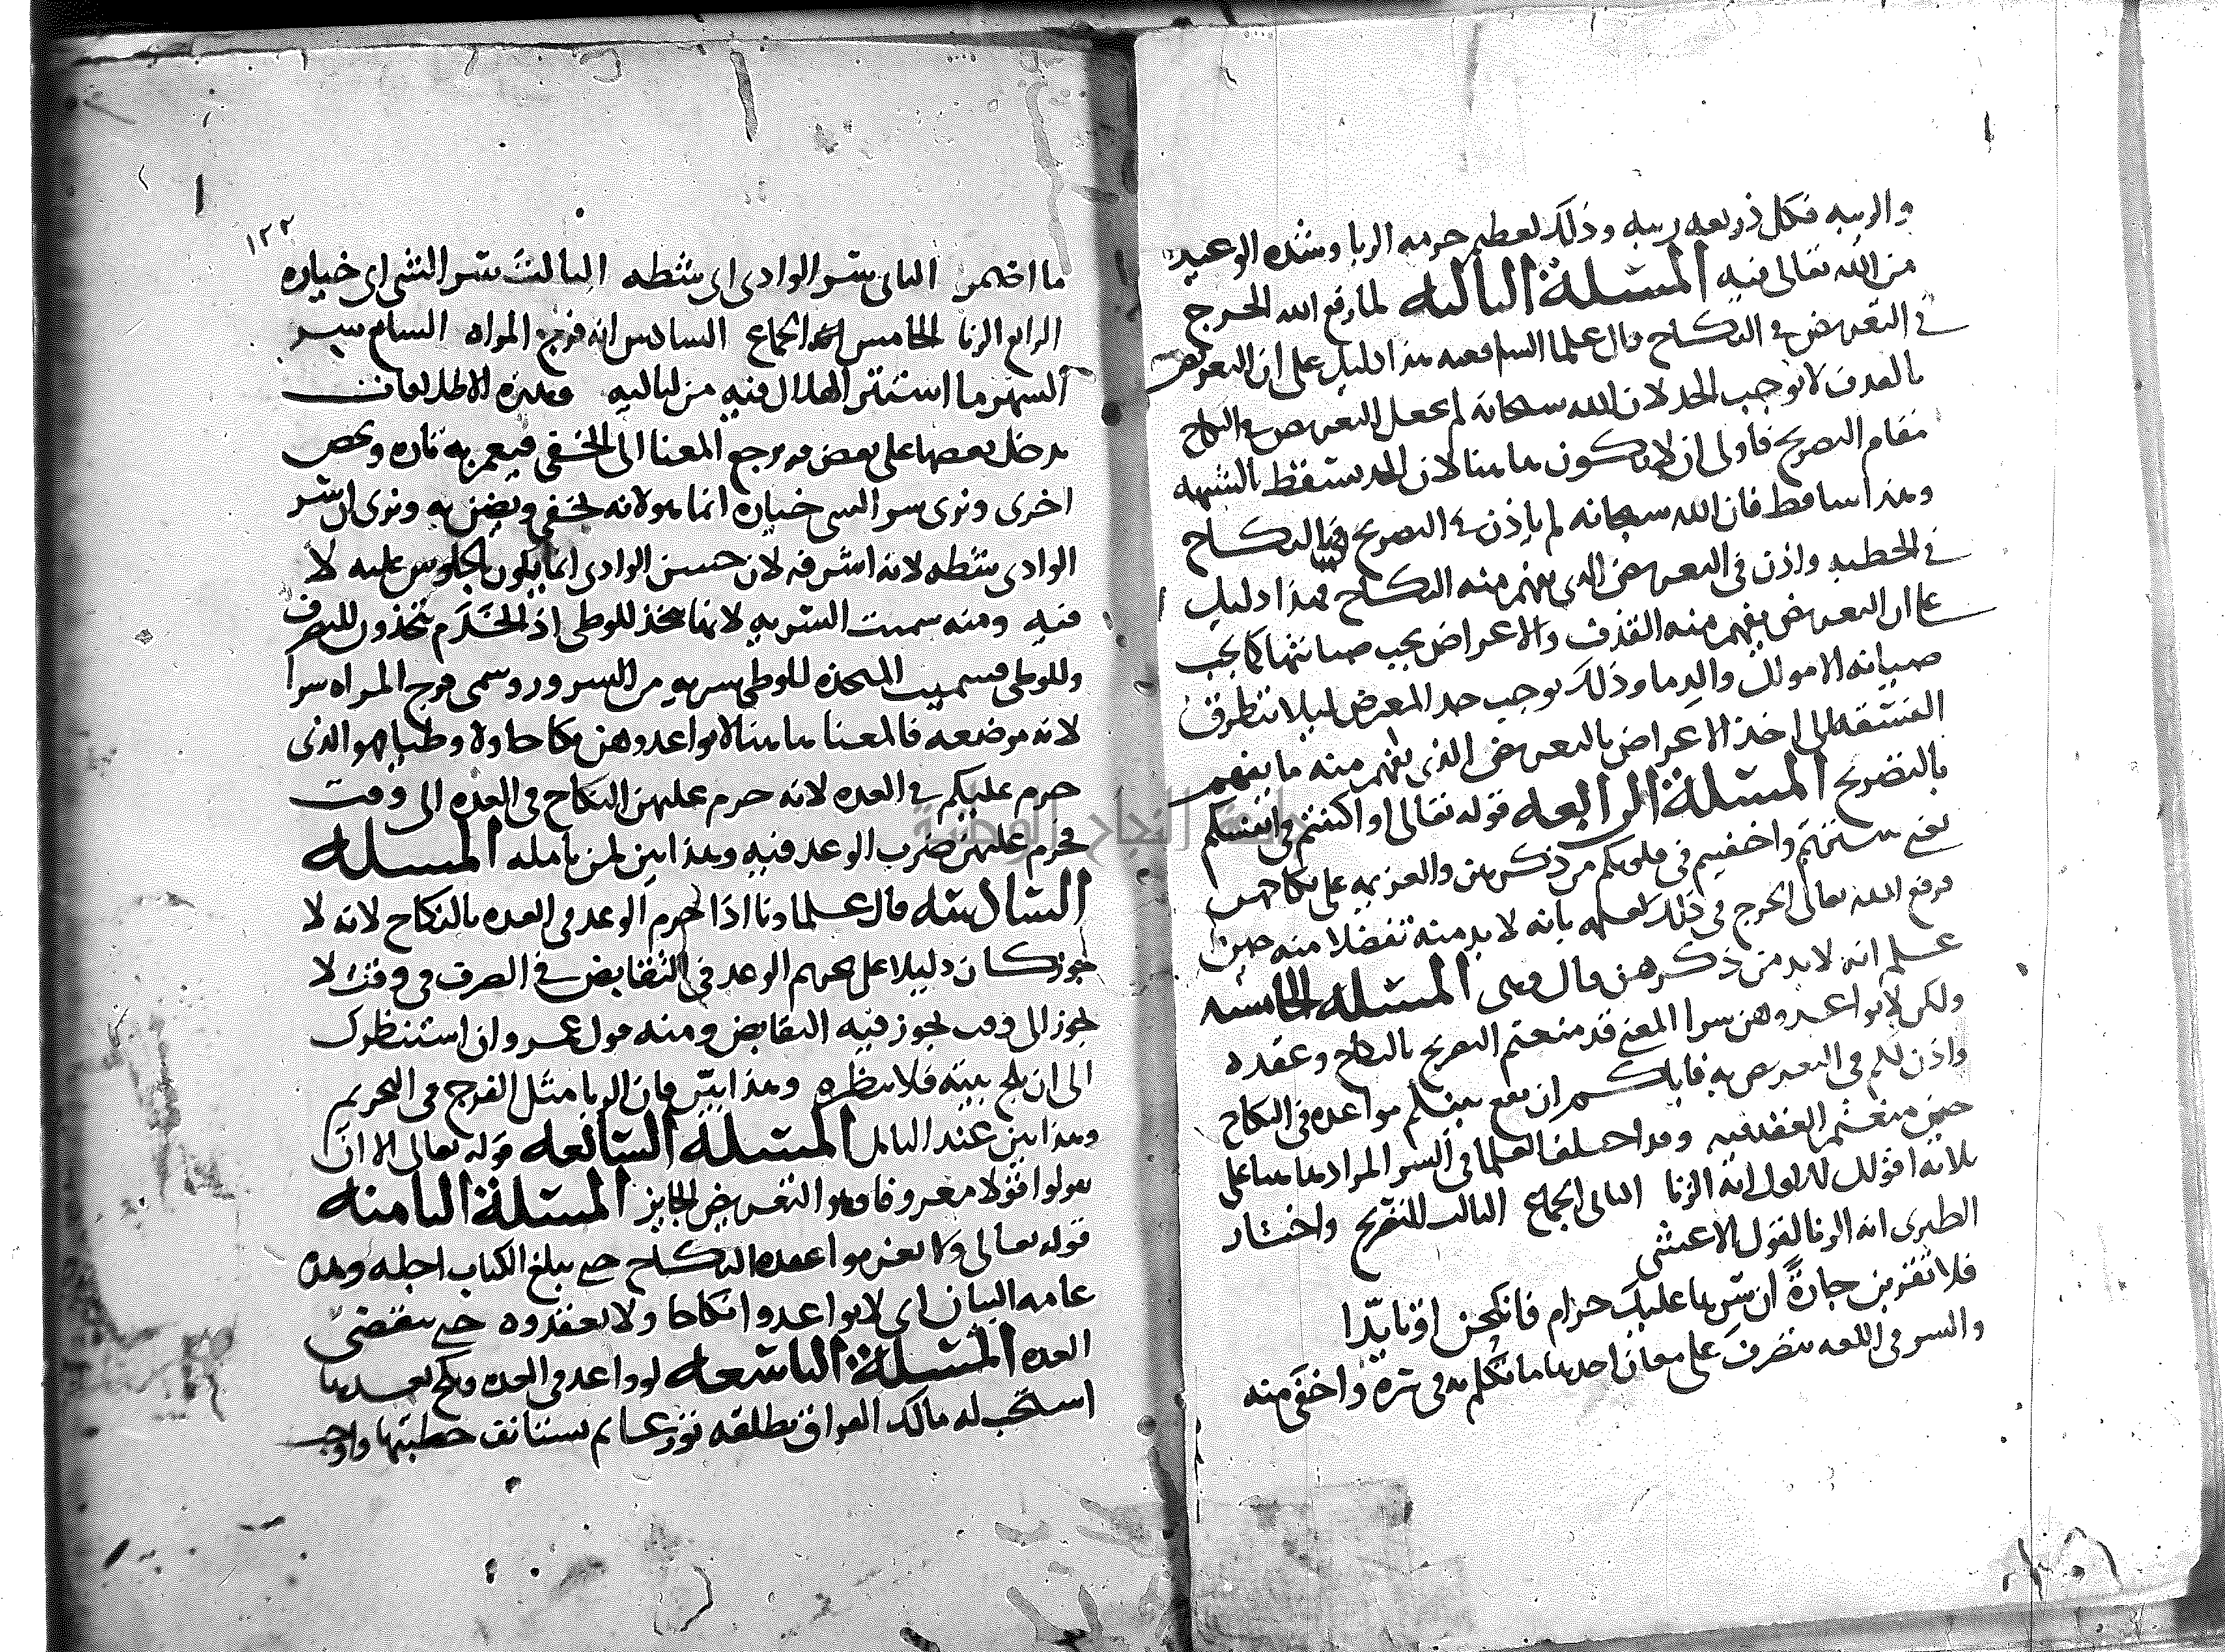 والريبه فكل ذريعه ريبه وذلك لعظيم حرمه الربا وشده الوعيد
من الله تعالى فيه المسئلة الثالثه لما رفع الله الحرج
في التعريض في النكاح قال علما الشافعيه هذا دليل على ان التعريض
بالقذف لا يوجب الحد لان الله سبحانه لم يجعل التعريض في النكاح
مقام التصريح فاولى ان لا يكون هاهنا لان الحد يسقط بالشبهه
وهذا ساقط فان الله سبحانه لم ياذن في التصريح في النكاح
في الخطبه واذن في التعريض الذي يفهم منه النكاح فهذا دليل
على ان التعريض يفهم منه القذف والاعراض يجب صيانتها كما يجب
صيانه الاموال والدما وذلك يوجب حد المعرض ليلا يتطرق
الفسقه الى اخذ الاعراض بالتعريض الذي يفهم منه ما يفهم
بالتصريح المسئلة الرابعه قوله تعالى او اكننتم في انفسكم
يعني سترتم واخفيتم في قلوبكم من ذكرهن والعزيمه على نكاحهن
فرفع الله تعالى الحرج في ذلك لعلمه بانه لا بد منه تفضلا منه حين
علم انه لا بد من ذكرهن قال وهي المسئله الخامسه
ولكن لا تواعدوهن سرا المعنى قد منعتم التصريح بالنكاح وعقده
واذن لكم في التعريض به فاياكم ان يقع بينكم مواعده في النكاح
حين منعتم العقد فيه وقد اختلف العلما في السر المراد هاهنا على
ثلاثه اقوال الاول انه الزنا الثاني الجماع الثالث التصريح واختار
الطبري انه الزنا لقول الاعشى
فلا تقربن جارةً ان سِرها عليك حرام فانكحن او تابّدا
والسر في اللغه يتصرف على معان احدها ما تكلم به في سره واخفى منه
١٢٢
ما اضمر الثاني سر الوادي اي شطه الثالث سر الشي اي خياره
الرابع الزنا الخامس انه الجماع السادس انه فرج المراه السابع سر
الشهر ما استتر الهلال فيه من لياليه وهذه الاطلاقات
يدخل بعضها على بعض قد يرجع المعنا الى الخفي فيعم به تاره ويخص
اخرى ونرى سر الشي خياره انما هو لانه يخفى ويضن به ونرى ان سر
الوادي شطه لانه اشرفه لان حسن الوادي انما يكون بالجلوس عليه لا
فيه ومنه سميت السريه لانها تتخذ للوطي اذ الخدم يتخذون للتصرف
وللوطي فسميت المتخذه للوطي سريه من السرور وسمي فرج المراه سرا
لانه موضعه فالمعنا هاهنا لا تواعدوهن نكاحا ولا وطيا فهو الذي
حرم عليكم في العده لانه حرم عليهن النكاح في العده الى وقت
فحرم عليهن ضرب الوعد فيه وهذا بين لمن تامله المسله
السادسه قال علماونا اذا حرم الوعد في العده بالنكاح لانه لا
يجوز كان دليلا على تحريم الوعد في التقابض في الصرف في وقت لا
يجوز الى وقت يجوز فيه التقابض ومنه قول عمر وان استنظرك
الى ان يلج بيته فلا تنظره وهذا بيّن فان الربا مثل الفرج في التحريم
وهذا بين عند التامل المسئله السابعه قوله تعالى الا ان
تقولوا قولا معروفا وهو التعريض الجايز المسئلة الثامنه
قوله تعالى ولا تعزموا عقده النكاح حتى يبلغ الكتاب اجله وهذه
عامه البيان اي لا تواعدوا نكاحا ولا تعقدوه حتى تنقضي
العده المسئلة التاسعه لو واعد في العده ونكح بعدها
استحب له مالك الفراق بطلقه تورعا ثم يستانف خطبتها واوجب